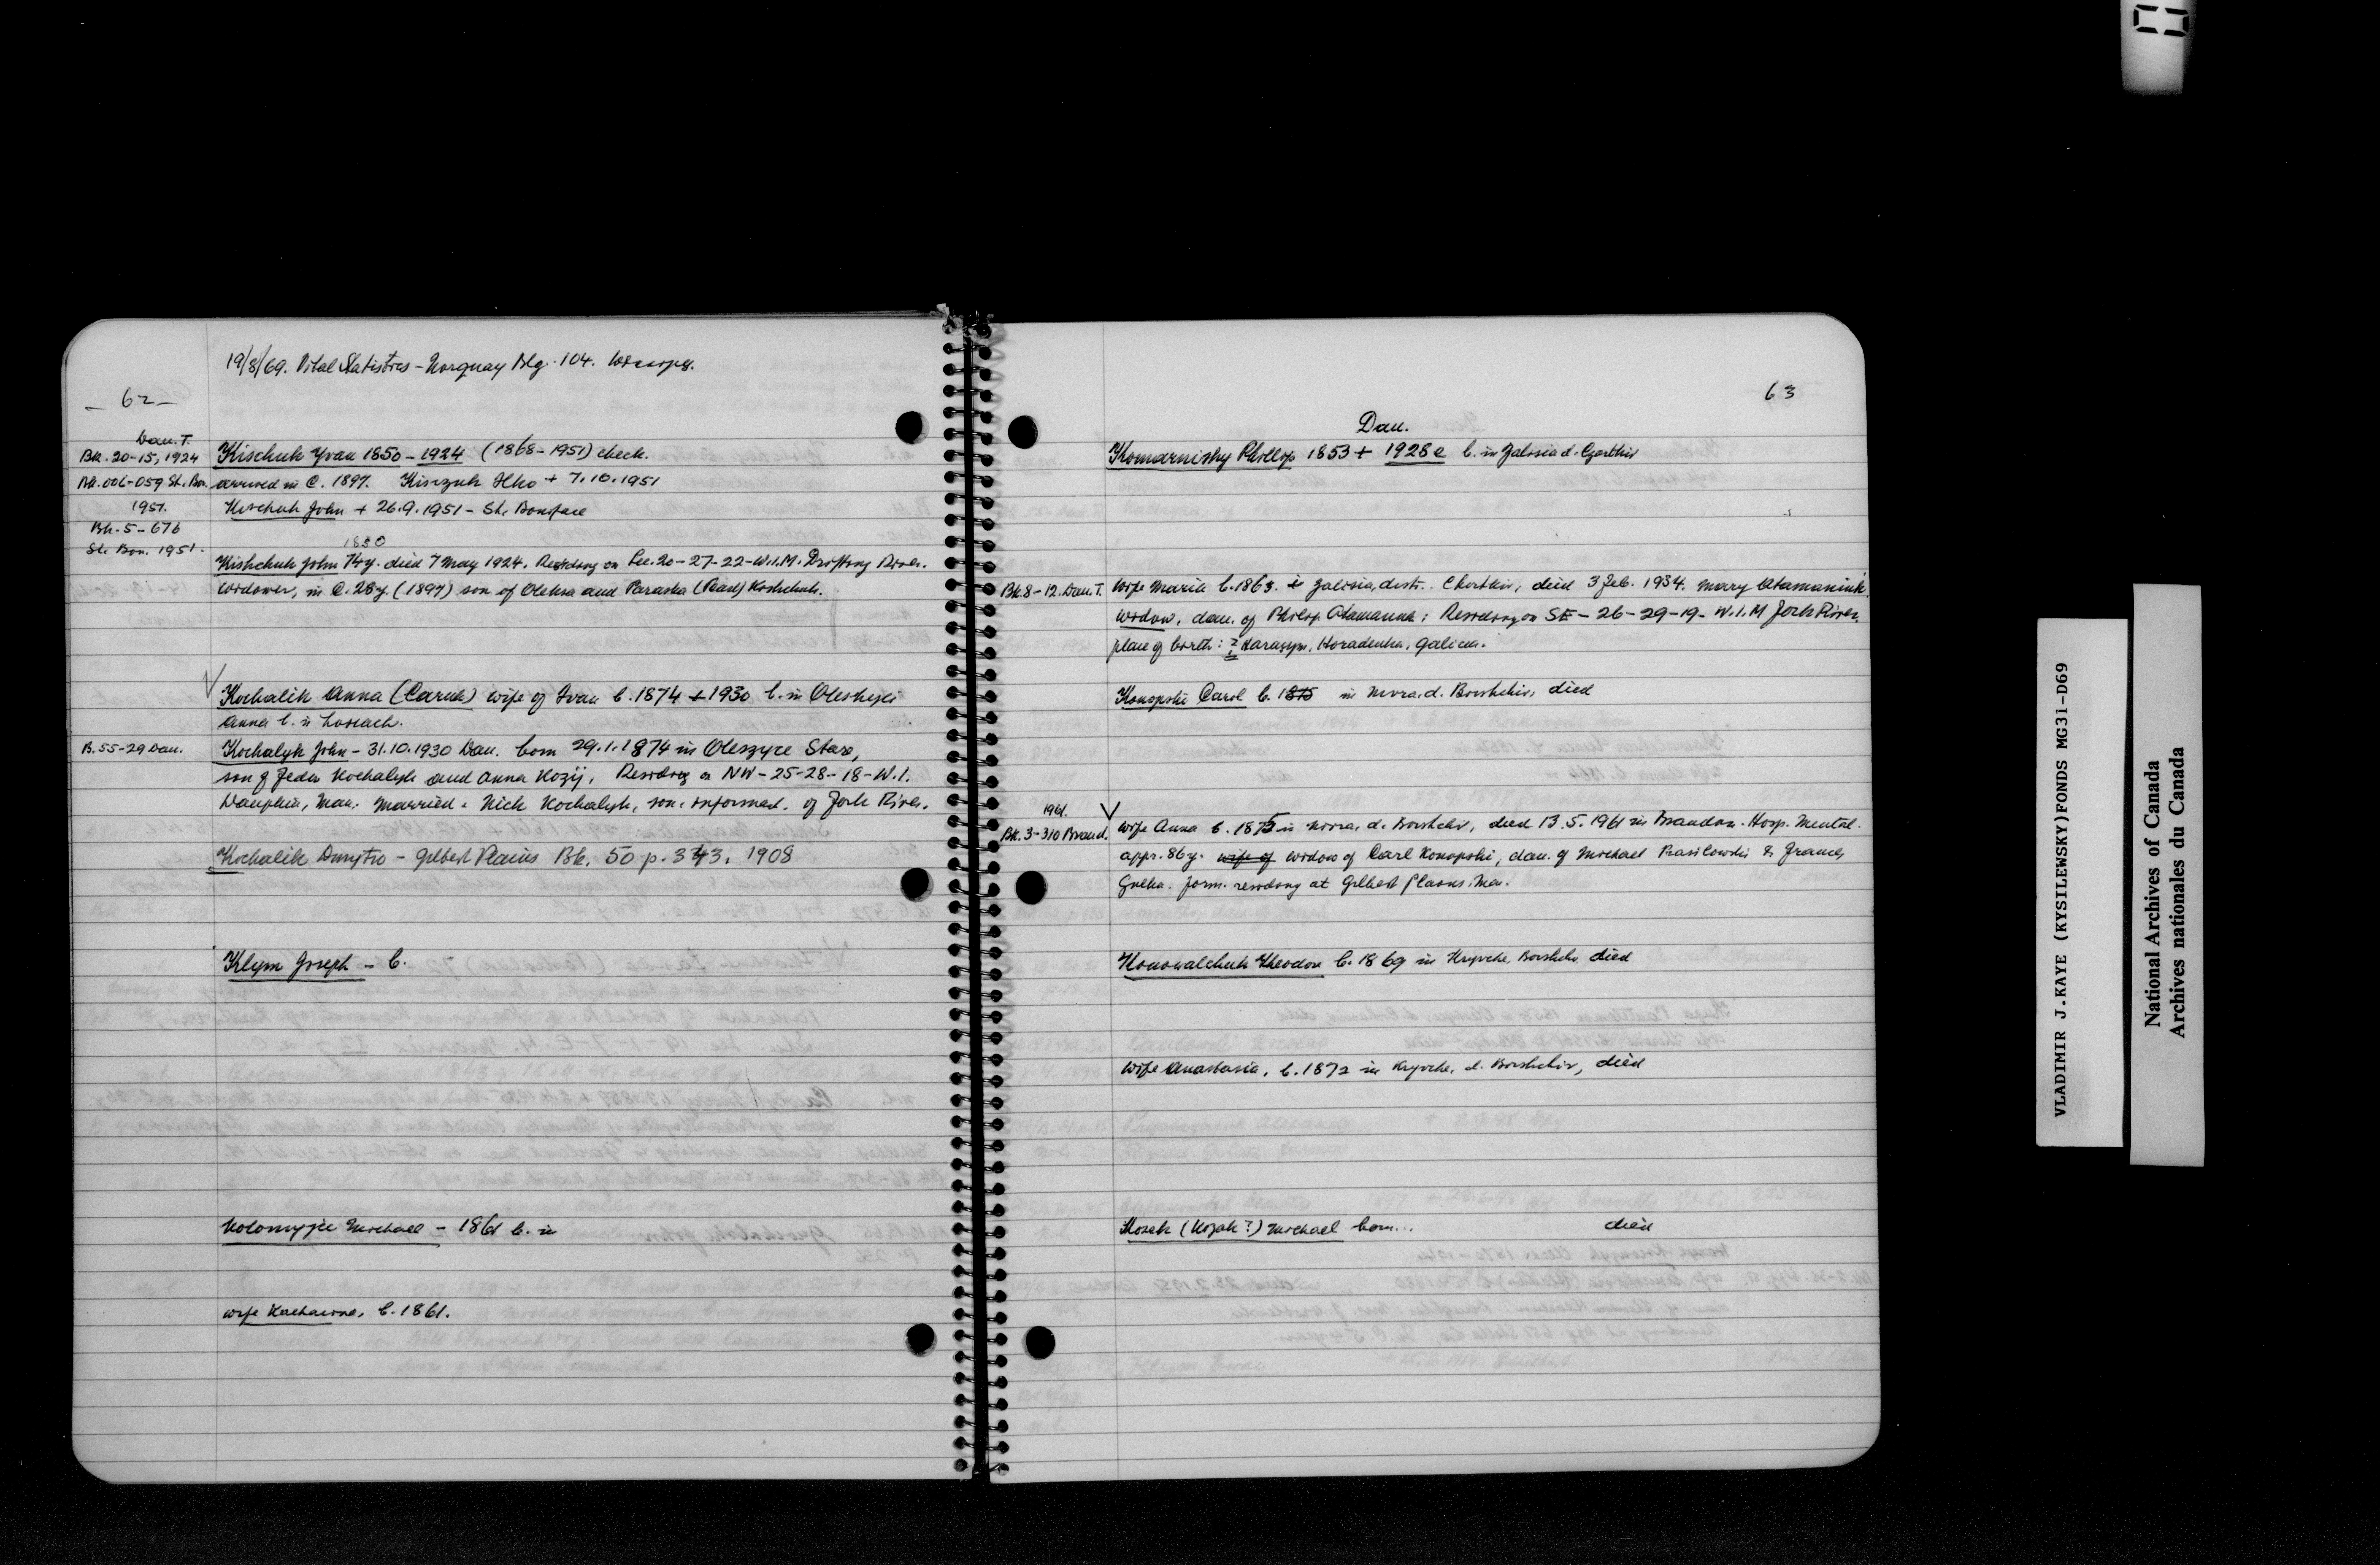 19/8/69. Vital Statistics - Norquay Blg. 104. Winnipeg.
- 62 -
Dau. T.
Bk. 20-15, 1924 Kischuk Yvan 1850 - 1924 (1868-1951) check.
Bk. 006-059 St. Bon. arrived in C. 1897. Kiszczuk Ilko + 7.10.1951
1951. Kischuk John + 26.9.1951 - St. Boniface
Bk. 5-676
St. Bon. 1951.
1850
Kishchuk John 74y. died 7 May 1924. Residing on Sec. 20-27-22-W.1.M. Drifting River.
Widower, in C. 28y. (1897) son of Oleksa and Paraska (Pearl) Kishchuk.
√ Kochalik Anna (Caruk) wife of Ivan b. 1874 + 1930 b. in
Anna b. in
B. 55-29 Dau. Kochalyk John - 31.10.1930 Dau. born 29.1.1874 in Oleszyce Stare,
son of Fedir Kochalyk and Anna Kozij. Residing on NW-25-28-18-W.1.
Dauphin, Man. Married. Nick Kochalyk, son, informant. of Fork River.
Kochalik Dmytro - Gilbert Plains Bk. 50 p. 343. 1908
Klym Joseph - b.
Kolomyjec Michael - 1861 b. in
wife Katharina, b. 1861.
63
Dau.
Komarnisky Phillip 1853 + 1928 b. in Zalisia d. Czortkiv
Bk 8-12. Dau. T. Wife Maria b. 1863. in Zalisia, distr. Chortkiv, died 3 Feb. 1934. Mary Atamaniuk.
Widow, dau. of Philip Atamaniuk; Residing on SE-26-29-19-W.1.M Fork River.
place of birth: ? Harasym, Horadenka, Galicia.
Konopski Carol b. 1875 in Nivra, d. Borshchiv, died
1961. √
Bk. 3-310 Brand. Wife Anna b. 1875 in Nivra, d. Borshchiv, died 13.5.1961 in Brandon. Hosp. Mental.
appr. 86y. wife of widow of Carl Konopski, dau. of Michael Wasilowski & Frances
form. residing at Gilbert Plains. Man.
Konowalchuk Theodore b. 1869 in Kryvche, Borshchiv died
Wife Anastasia, b. 1872 in Kryvche, d. Borshchiv, died
Kosak (Kozak?) Michael born... died
VLADIMIR J.KAYE (KYSILEWSKY)FONDS MG31-D69
National Archives of Canada
Archives nationales du Canada